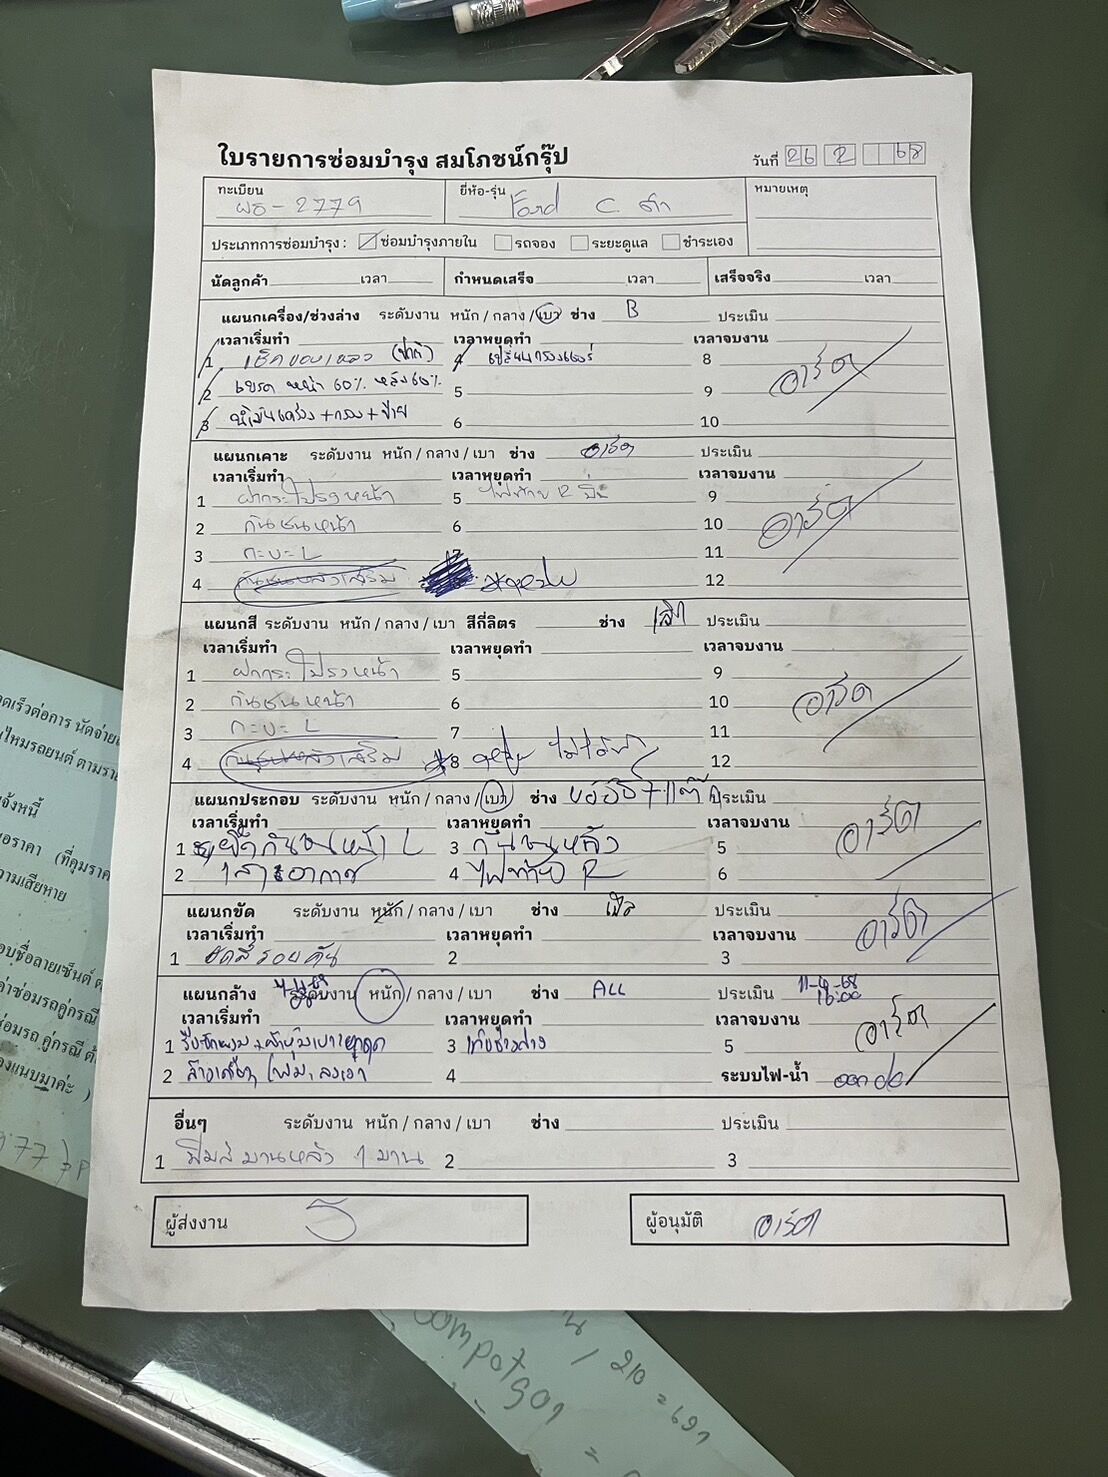 ใบรายการซ่อมบำรุง สมโภชน์กรุ๊ป
วันที่ 26 2 68
ทะเบียน
ผธ - 2779
ยี่ห้อ-รุ่น
Ford C. ดำ
หมายเหตุ
ประเภทการซ่อมบำรุง : ซ่อมบำรุงภายใน รถจอง ระยะดูแล ชำระเอง
นัดลูกค้า เวลา กำหนดเสร็จ เวลา เสร็จจริง เวลา
แผนกเครื่อง/ช่วงล่าง ระดับงาน หนัก / กลาง / เบา ช่าง B ประเมิน
เวลาเริ่มทำ เวลาหยุดทำ เวลาจบงาน
1 เช็คของเหลว (ปกติ) 4 เปลี่ยนกรองแอร์ 8
2 เบรค หน้า 60% หลัง 60% 5 9
3 น้ำมันเครื่อง + กรอง + ป้าย 6 10
อาร์ต
แผนกเคาะ ระดับงาน หนัก / กลาง / เบา ช่าง อาร์ต ประเมิน
เวลาเริ่มทำ เวลาหยุดทำ เวลาจบงาน
1 ฝากระโปรงหน้า 5 ไฟท้าย R 9
2 กันชนหน้า 6 10
3 กะบะ L 11
4 กันชนหลังเสริม 12
อาร์ต
แผนกสี ระดับงาน หนัก / กลาง / เบา สีกี่ลิตร ช่าง ประเมิน
เวลาเริ่มทำ เวลาหยุดทำ เวลาจบงาน
1 ฝากระโปรงหน้า 5 9
2 กันชนหน้า 6 10
3 กะบะ L 7 11
4 กันชนหลังเสริม 8 12
อาร์ต
แผนกประกอบ ระดับงาน หนัก / กลาง / เบา ช่าง ประเมิน
เวลาเริ่มทำ เวลาหยุดทำ เวลาจบงาน
1 ยึดกันชนหน้า L 3 กันชนหลัง 5
2 เสาอากาศ 4 ไฟท้าย R 6
อาร์ต
แผนกขัด ระดับงาน หนัก / กลาง / เบา ช่าง ประเมิน
เวลาเริ่มทำ เวลาหยุดทำ เวลาจบงาน
1 ขัดสีรอบคัน 2 3
อาร์ต
แผนกล้าง ระดับงาน หนัก / กลาง / เบา ช่าง ALL ประเมิน
16:00
เวลาเริ่มทำ เวลาหยุดทำ เวลาจบงาน
1 3 5
2 4 ระบบไฟ-น้ำ
อาร์ต
อื่นๆ ระดับงาน หนัก / กลาง / เบา ช่าง ประเมิน
1 ฟิมส์บานหลัง 1 บาน 2 3
ผู้ส่งงาน
ผู้อนุมัติ อาร์ต
ดเร็วต่อการ นัดจ่าย
ไหมรถยนต์ ตามรา
จ้งหนี้
อราคา (ที่คุมราค
วามเสียหาย
อบชื่อลายเซ็นต์
ค่าซ่อมรถคู่กรณี
ซ่อมรถ คู่กรณี
องแนบมาค่ะ )
/ 210 = 691